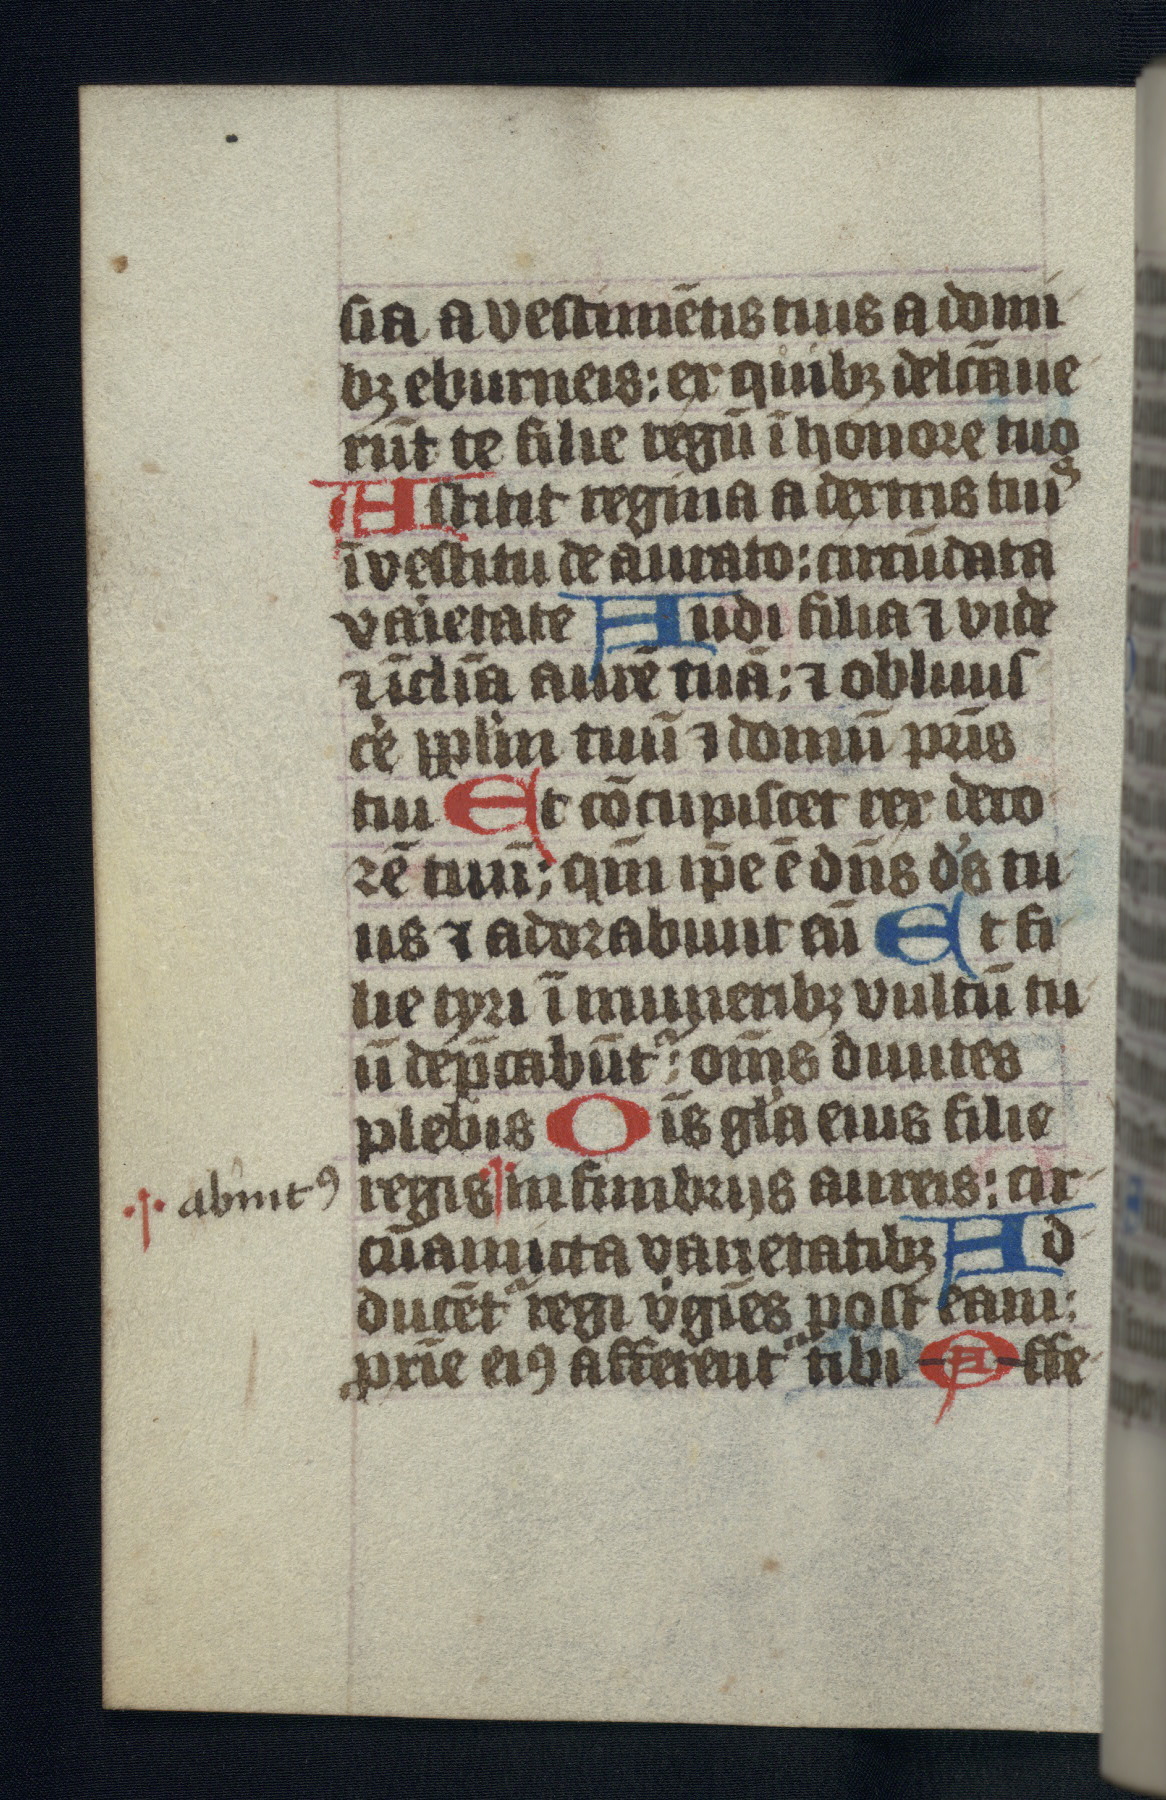 sia a vestimētis tuis a domi
bꝫ eburneis: ex quibꝫ delcāue
rūt te filie regū ī honore tuo
Astitit regina a dextris tuiˢ
ī vestitu de aurato: circūdata
vaietate Audi filia ⁊ vide
⁊ īclīa aurē tuā: ⁊ obliuis
ce pplm̄ tuū ⁊ domū pr̄is
tui Et cōcupiscet rex deco
rē tuū: qm̄ ip̄e ē dn̄s dˀs tu
us ⁊ adorabunt eū Et fi
lie tyri ī muneribꝫ vultū tu
ū dep̄cabūtˀ: om̄s diuites
plebis Oīs gl̄a eius filie
regis in fimbrijs aureis: cir
abīntꝰ
cūamicta varietatibꝫ Ad
ducētˀ regi v̇gīes post eam:
prīe eiꝯ afferentˀ tibi Affe